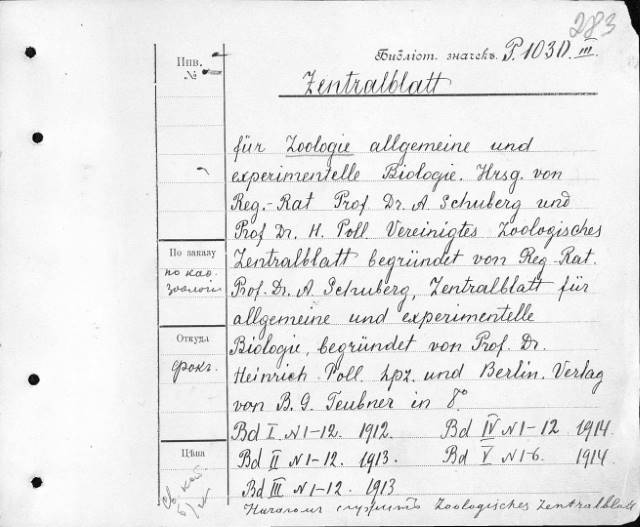 283
Библіот. значекъ. P. 1030. III.
Инв.
№
Zentralblatt
für Zoologie allgemeine und
experimentelle Biologie. Hrsg. von
Reg.-Rat Prof Dr. A. Schuberg und
Prof Dr. H. Poll. Vereinigtes Zoologisches
По заказу
по каб.
зоологіи
Zentralblatt begründet von Reg. Rat.
Prof. Dr. A. Schuberg, Zentralblatt für
allgemeine und experimentelle
Откуда
фокг.
Biologie, begründet von Prof. Dr.
Heinrich Poll. Lpz. und Berlin. Verlag
von B. G. Teubner in 8°
Bd I N 1-12. 1912. Bd IV N 1-12 1914.
Цѣна
Bd II N 1-12. 1913. Bd V N 1-6. 1914
Bd III N 1-12. 1913
Началомъ служитъ Zoologisches Zentralblatt